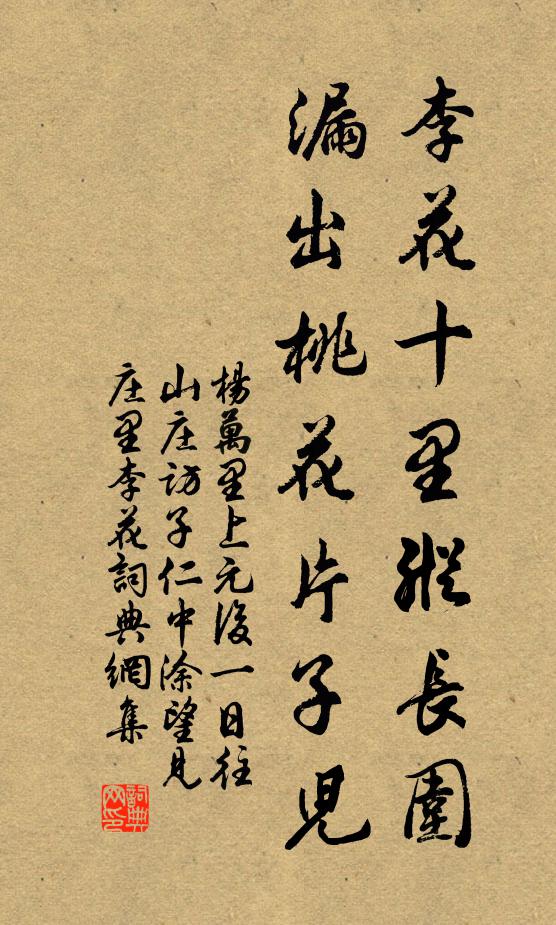 李花十里縱長圍
漏出桃花片子兒
楊萬里上元後一日往
山庄訪子仁中涂望見
庄里李花詞典網集
詞典网印